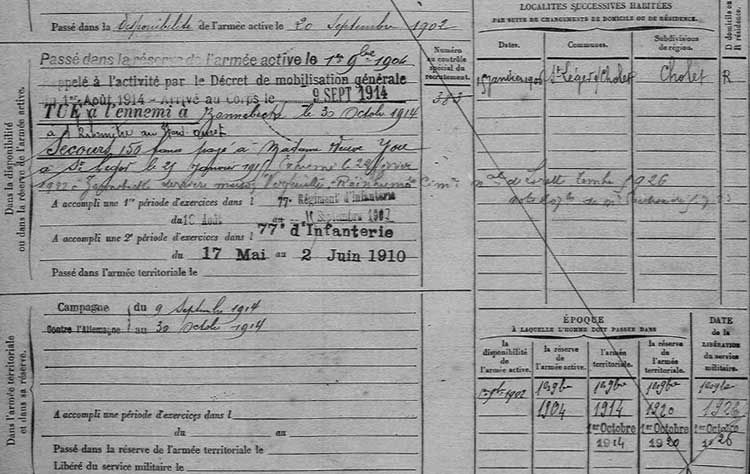 Passé dans la Disponibilité de l'armée active le 20 Septembre 1902
Passé dans la réserve de l'armée active le 1er 9bre 1904
Rappelé à l'activité par le Décret de mobilisation générale
du 1er Août 1914 - Arrivé au Corps le 9 SEPT 1914
TUÉ à l'ennemi à le 30 Octobre 1914
à
Secours 150 francs payé à Madame Veuve You
à St Léger le 25 Janvier 1915
A accompli une 1re période d'exercices dans l 77e Régiment d'Infanterie
du 18 Août au Septembre 1907
A accompli une 2e période d'exercices dans l 77e d'Infanterie
du 17 Mai au 2 Juin 1910
Passé dans l'armée territoriale le
Dans la disponibilité
ou dans la réserve de l'armée active.
Numéro
au contrôle
spécial du
recrutement.
383
Campagne du 9 Septembre 1914
Contre l'Allemagne au 30 Octobre 1914
A accompli une période d'exercices dans l
du au
Passé dans la réserve de l'armée territoriale le
Libéré du service militaire le
Dans l'armée territoriale
et dans sa réserve.
LOCALITÉS SUCCESSIVES HABITÉES
PAR SUITE DE CHANGEMENTS DE DOMICILE OU DE RÉSIDENCE.
Dates. Communes. Subdivisions
de région.
D domicile ou
R résidence.
St Léger s/ Cholet Cholet R
ÉPOQUE
À LAQUELLE L'HOMME DOIT PASSER DANS
DATE
de la
LIBÉRATION
du service
militaire.
la
disponibilité
de
l'armée active.
la réserve
de
l'armée active.
l'armée
territoriale.
la réserve
de l'armée
territoriale.
1er 9bre 1902 1er 9bre 1er 9bre 1er 9bre 1er 9bre
1904 1914 1920 1926
1er Octobre 1er Octobre 1er Octobre
1914 1920 1926